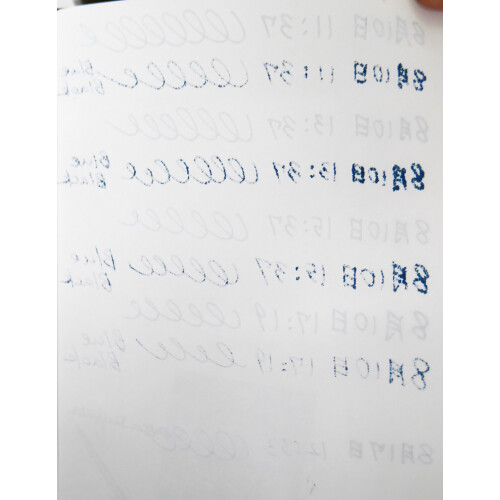 8月10日 11:37
8月10日 11:37 Blue
Black
8月10日 13:37
8月10日 13:37 Blue
Black
8月10日 15:37
8月10日 15:37 Blue
Black
8月10日 17:19
8月10日 17:19 Blue
Black
8月17日